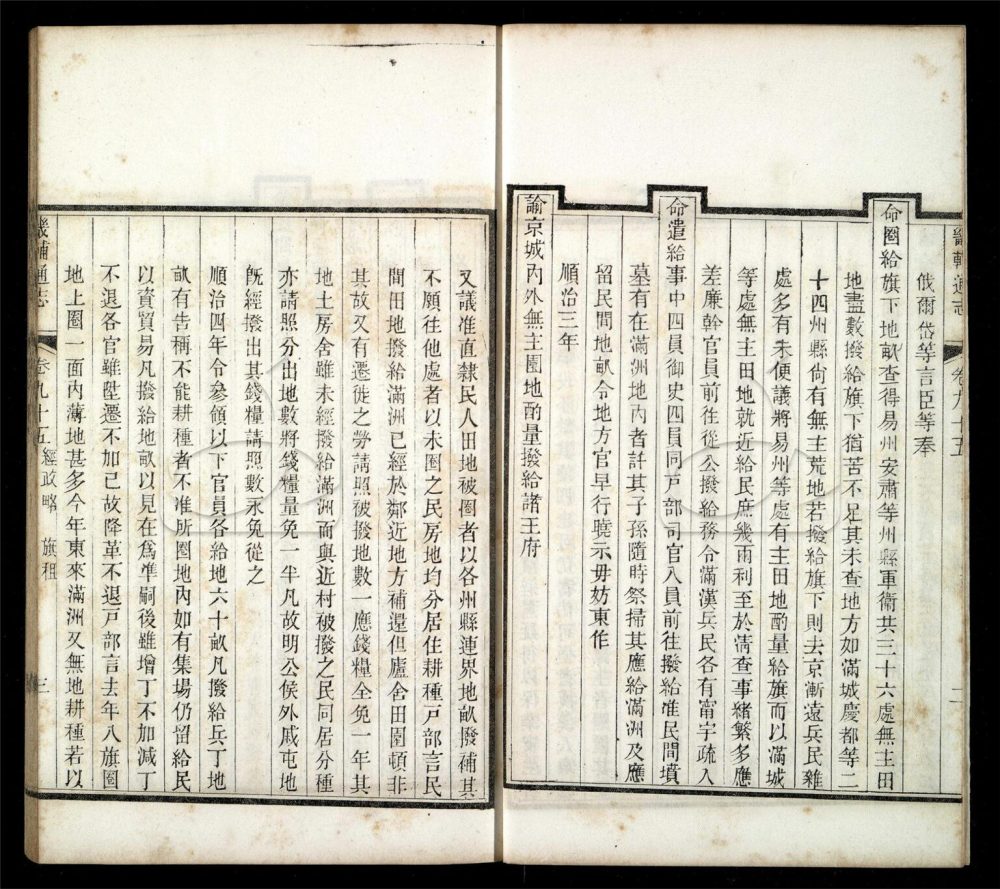 畿輔通志 卷九十五 二
俄爾岱等言臣等奉
命圈給旗下地畝查得易州安肅等州縣軍衛共三十六處無主田
地盡數撥給旗下猶苦不足其未查地方如滿城慶都等二
十四州縣尚有無主荒地若撥給旗下則去京漸遠兵民雜
處多有未便議將易州等處有主田地酌量給旗而以滿城
等處無主田地就近給民庶幾兩利至於清查事緒繁多應
差廉幹官員前往從公撥給務令滿漢兵民各有甯宇疏入
命遣給事中四員御史四員同戸部司官八員前往撥給准民間墳
墓有在滿洲地內者許其子孫隨時祭掃其應給滿洲及應
留民間地畝令地方官早行曉示毋妨東作
順治三年
諭京城內外無主園地酌量撥給諸王府
又議准直隸民人田地被圈者以各州縣連界地畝撥補其
不願往他處者以未圈之民房地均分居住耕種戸部言民
間田地撥給滿洲已經於鄰近地方補還但廬舍田園頓非
其故又有遷徙之勞請照被撥地數一應錢糧全免一年其
地土房舍雖未經撥給滿洲而與近村被撥之民同居分種
亦請照分出地數將錢糧量免一半凡故明公侯外戚屯地
旣經撥出其錢糧請照數永免從之
順治四年令參領以下官員各給地六十畝凡撥給兵丁地
畝有告稱不能耕種者不准所圈地內如有集場仍留給民
以資貿易凡撥給地畝以見在爲準嗣後雖增丁不加減丁
不退各官雖陞遷不加已故降革不退戸部言去年八旗圈
地上圈一面內薄地甚多今年東來滿洲又無地耕種若以
畿輔通志 卷九十五 經政略 旗租 三